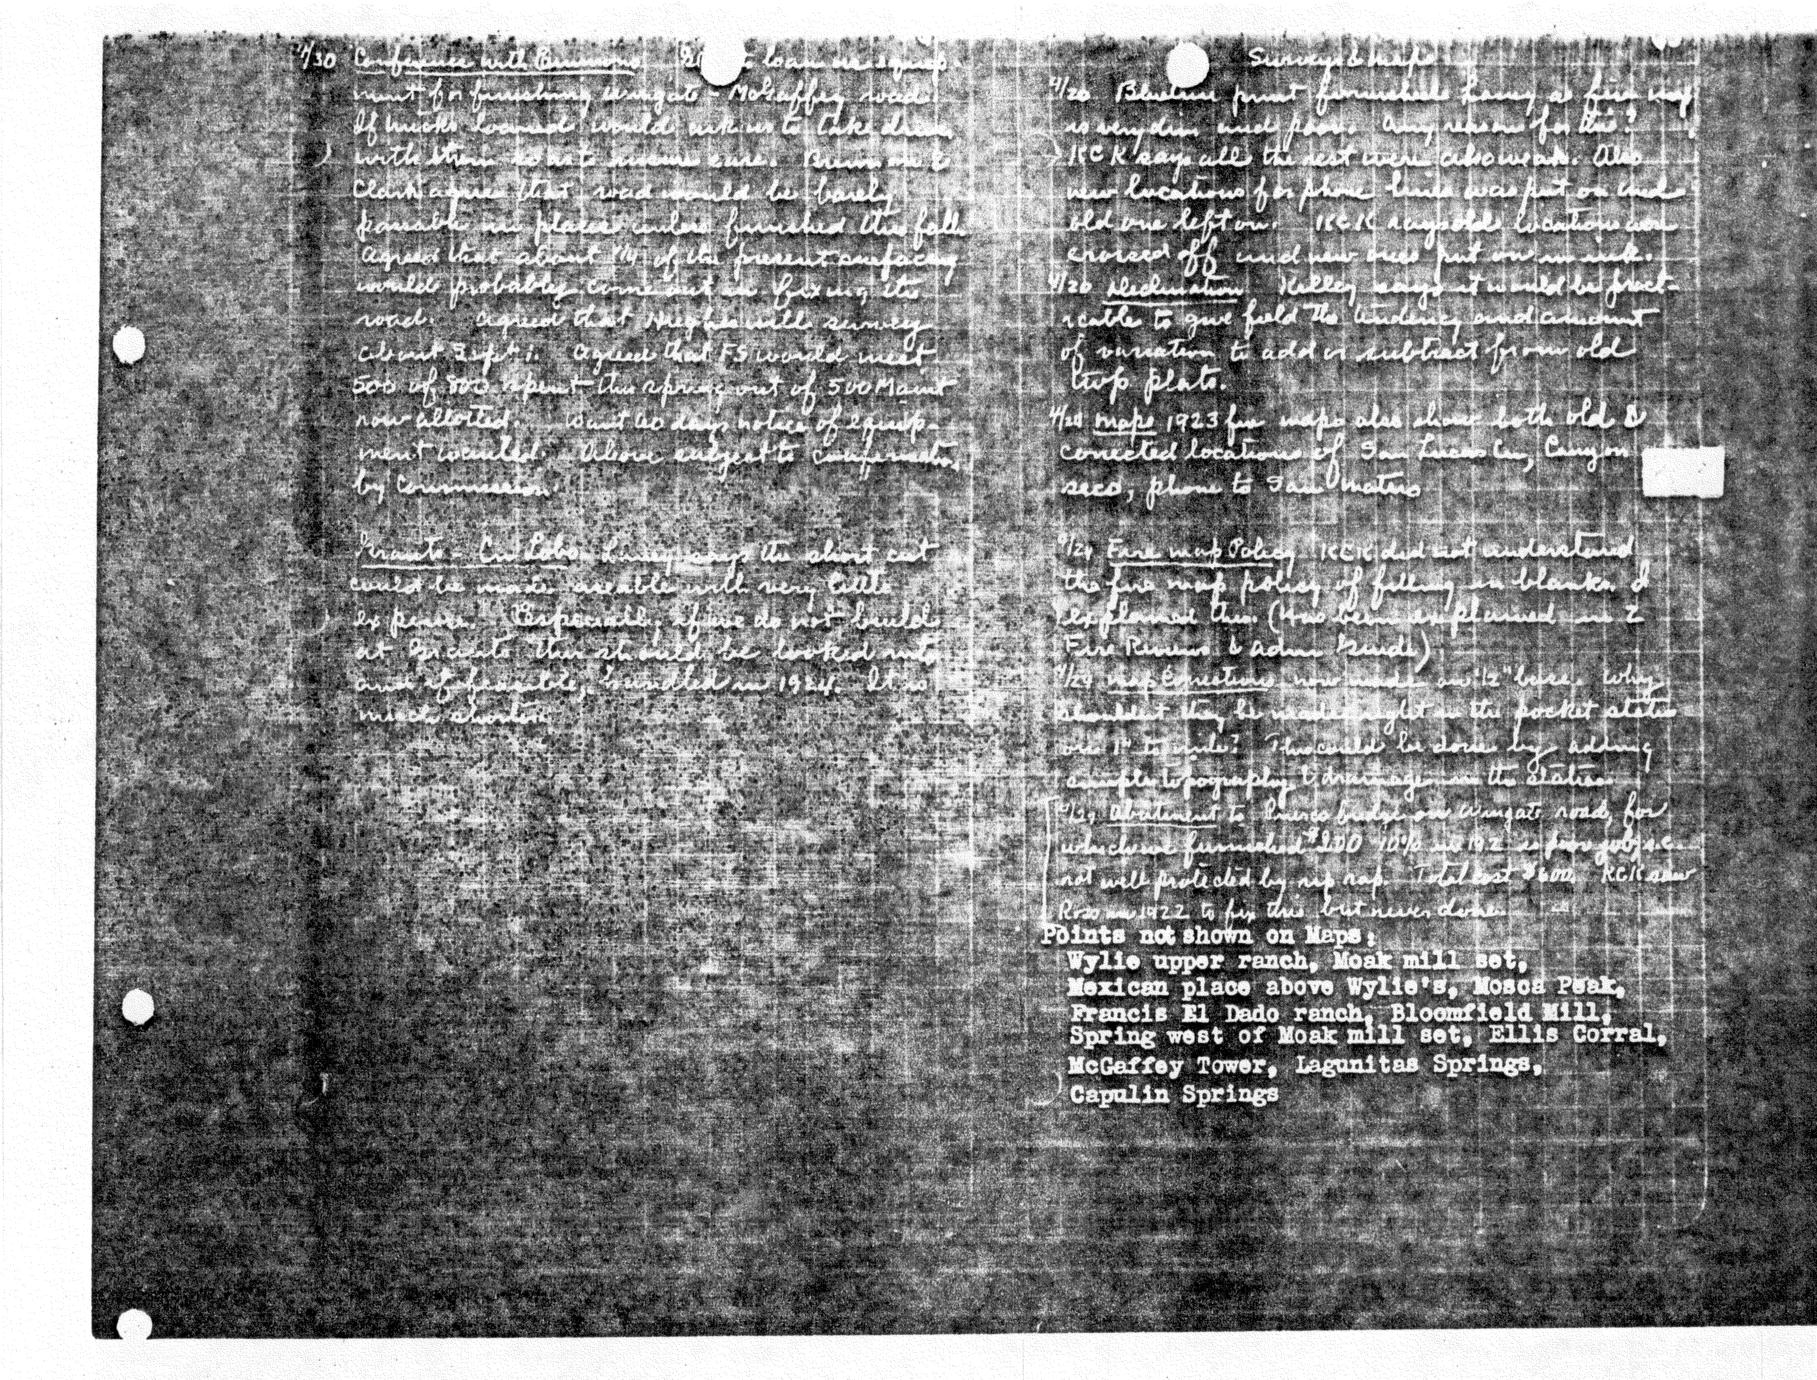 4/30 Conference with Brunnons to loan us equip-
ment for finishing Wingate McGaffey road.
If trucks loaned would ask us to take
with them so as to insure care.
Clark agree that road would be barely
passable in places unless finished this fall.
Agreed that about of the present surfacing
would probably come out in fixing its
road. Agreed that Hughes will survey
about Sept 1. Agreed that FS would meet
500 of 800 spent this spring out of 500 Maint
now allotted. Want 60 days notice of equip-
ment wanted. Above subject to
by Commission.
Grants - Cn Lobo. says the short cut
could be made useable with very little
expense. Especially if we do not build
at Grants this should be looked into
and if feasible, handled in 1924. It is
much shorter.
Surveys & Maps
4/20 Blueline print furnished as fire map
is very dim and poor. Any reason for this?
KCK says all the rest were also weak. Also
new locations for phone lines was put on and
old one left on. KCK says old location were
crossed off and new ones put on in ink.
4/20 Declination Kelley says it would be pract-
icable to give field the tendency and amount
of variation to add or subtract from old
twp plats.
4/24 Maps 1923 fire maps also show both old &
corrected locations of San Lucas Cn, Canyon
seco, phone to San Mateo
4/24 Fire map Policy KCK did not understand
the fire map policy of filling in blanks. I
explained this. (Has been explained in 2
Fire Reviews & adm Guide)
4/24 Map Corrections now made on "1/2" base. Why
shouldn't they be made right in the pocket
on 1" to mile? This could be done by adding
simple topography & drainage in the
4/29 Abutment to Puerco bridge on Wingate road, for
which we furnished $200 10% in 192 is poor job, i.e.
not well protected by rip rap. Total cost $600. KCK saw
Ross in 1922 to fix this but never done.
Points not shown on Maps:
Wylie upper ranch, Moak mill set,
Mexican place above Wylie's, Mosca Peak,
Francis El Dado ranch, Bloomfield Mill,
Spring west of Moak mill set, Ellis Corral,
McGaffey Tower, Lagunitas Springs,
Capulin Springs